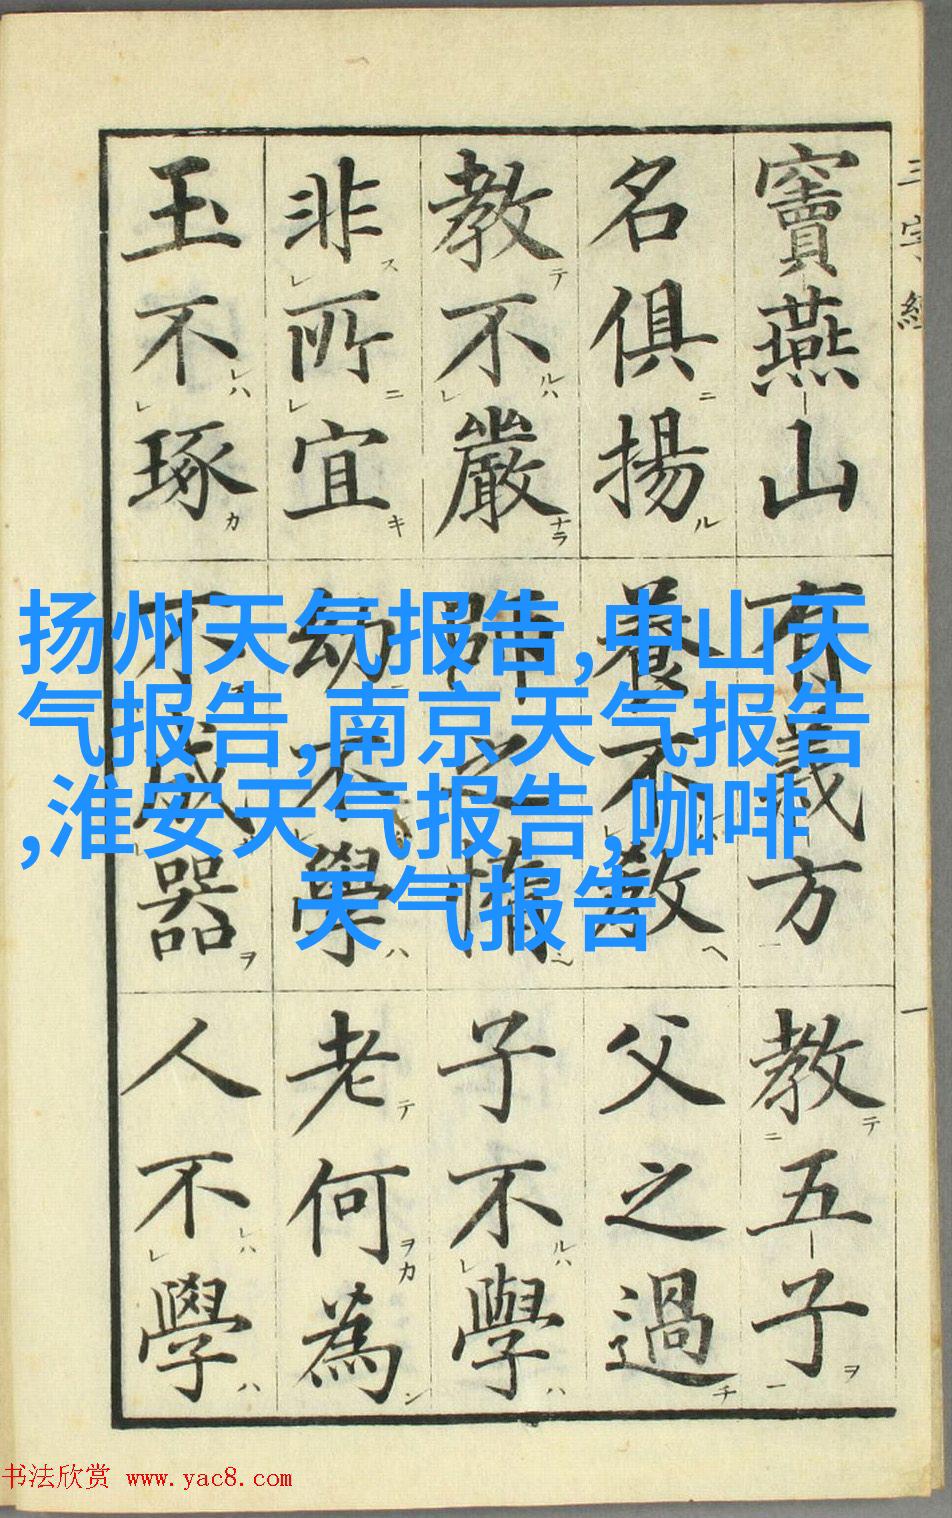 三字經
一
竇燕山有義方教五子
名俱揚養不教父之過
教不嚴師之惰子不學
非所宜幼不學老何為
玉不琢不成器人不學
扬州天气报告,中山天
气报告,南京天气报告
,淮安天气报告,咖啡
天气报告
书法欣赏 www.yac8.com